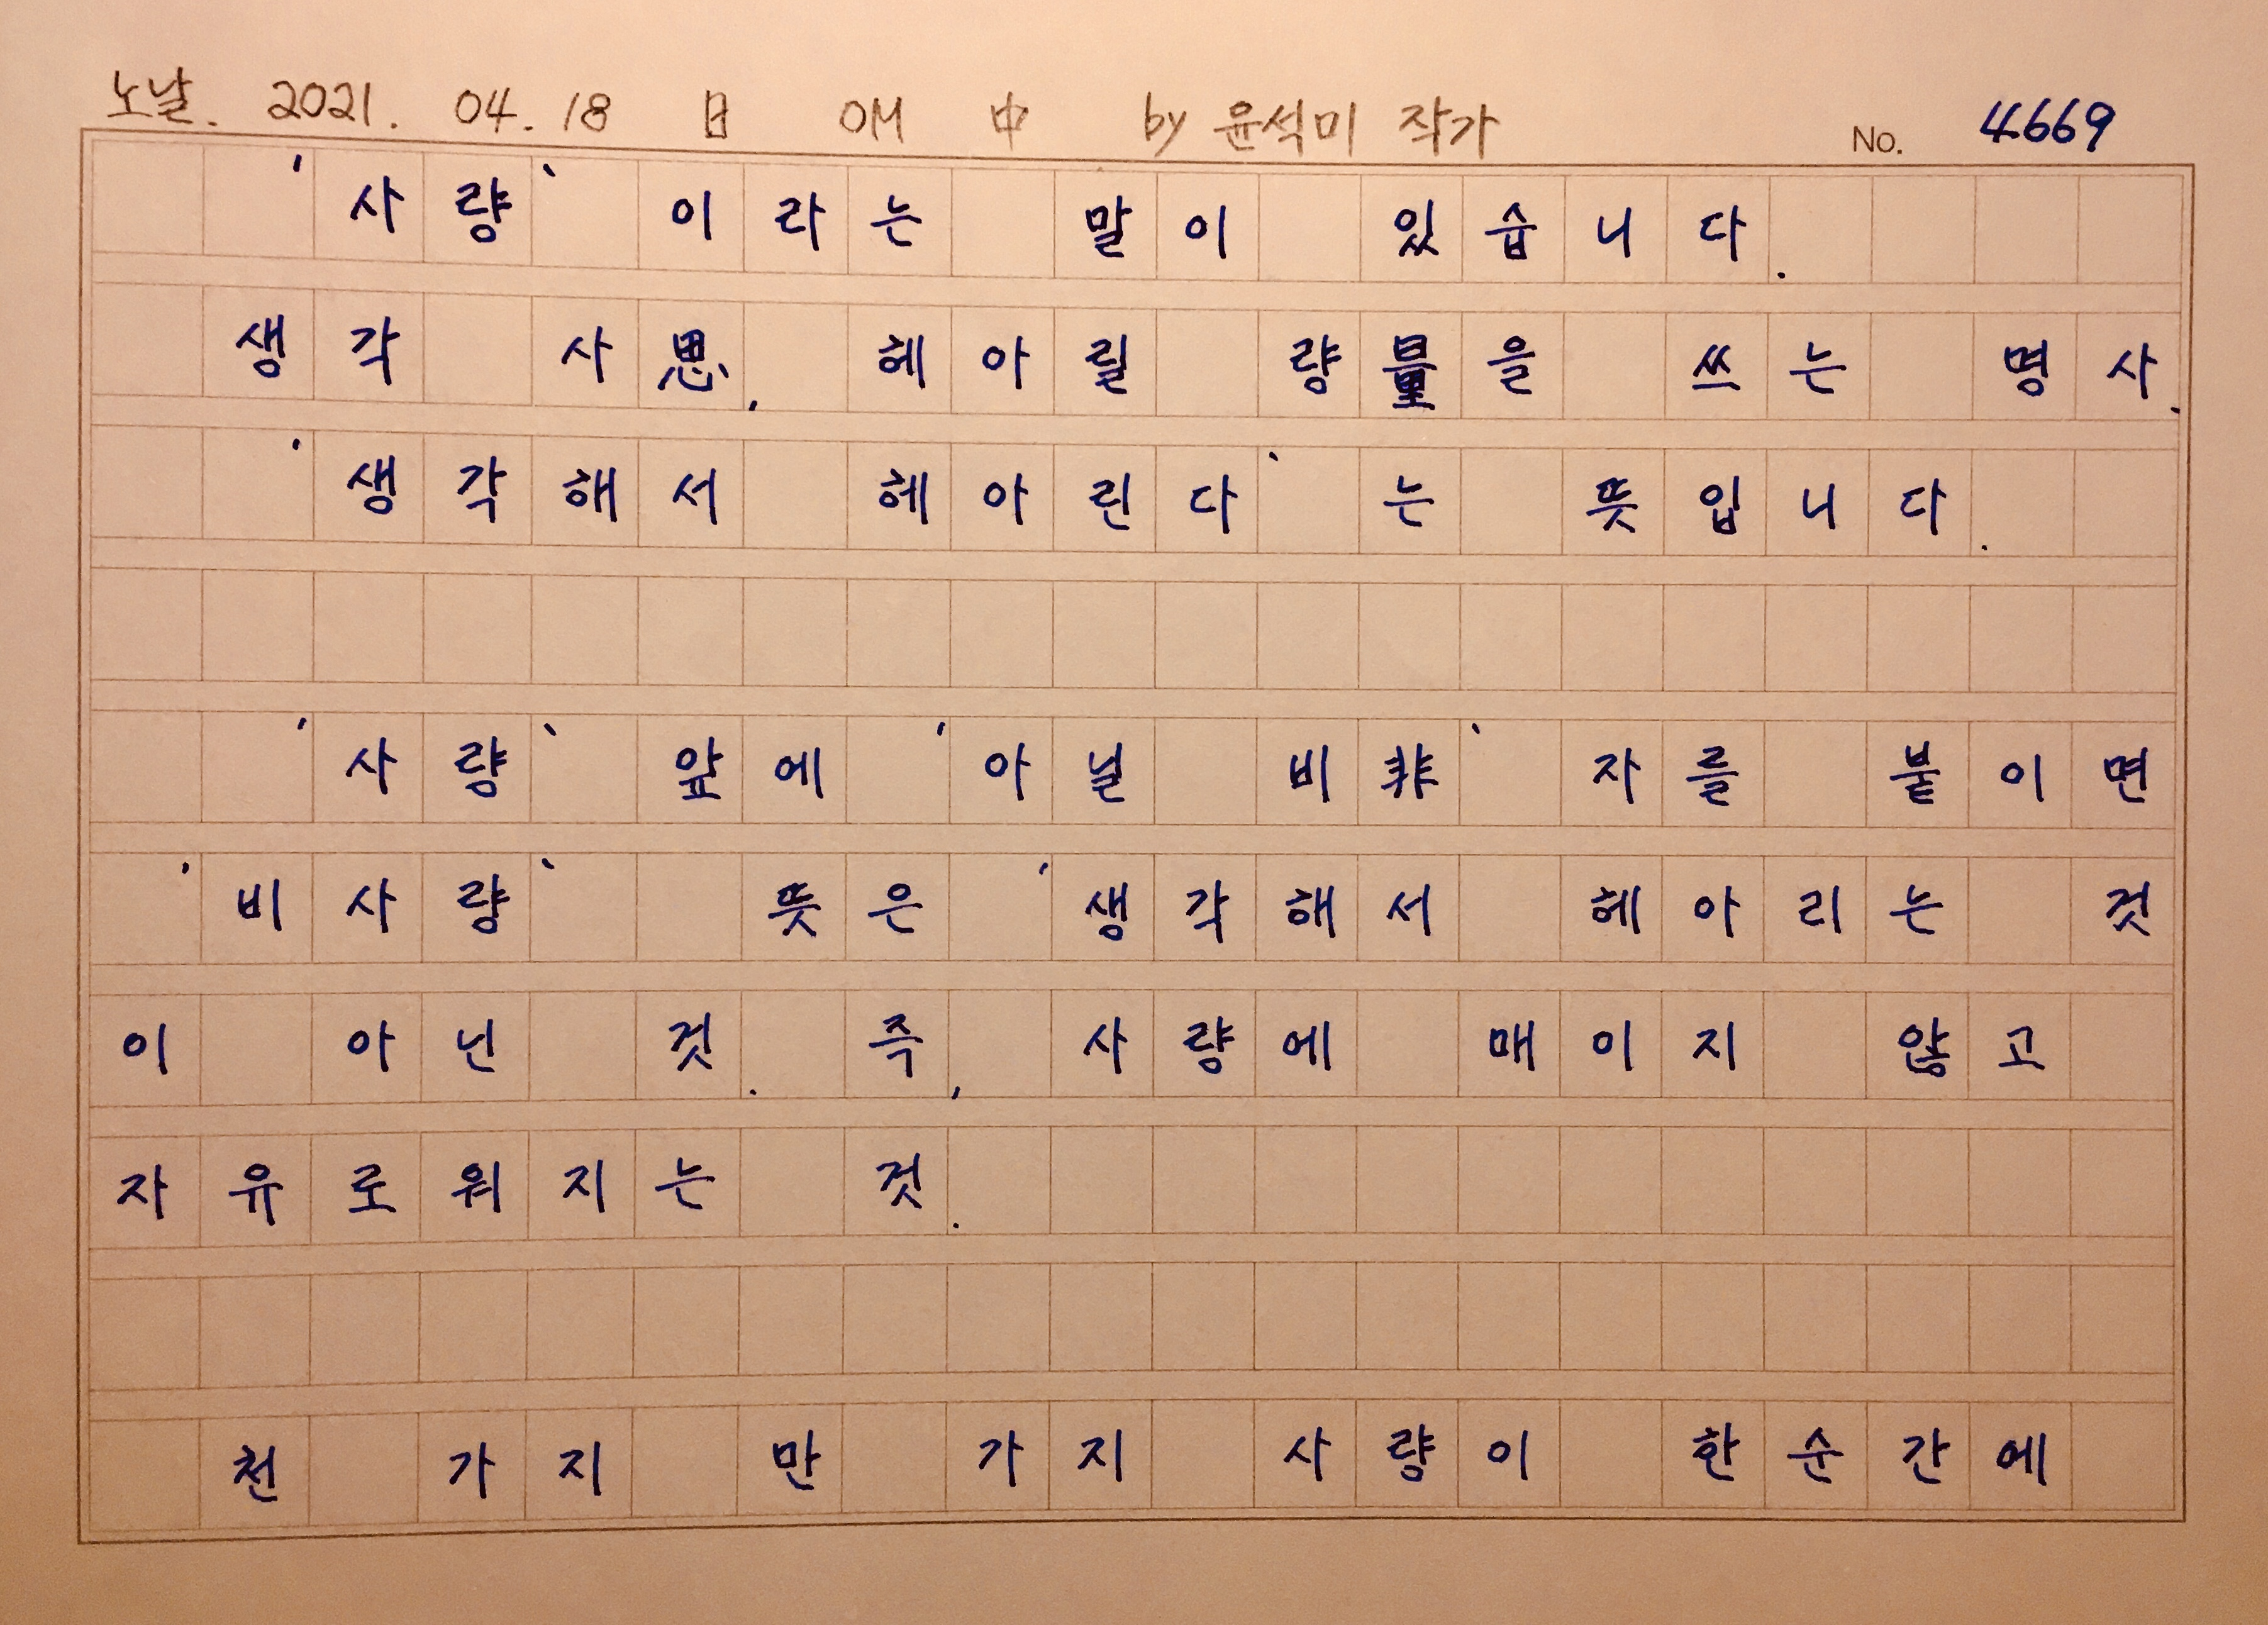 노날. 2021. 04. 18 日 OM 中 by 윤석미 작가 No. 4669
'사량' 이라는 말이 있습니다.
생각 사思, 헤아릴 량量을 쓰는 명사.
'생각해서 헤아린다' 는 뜻입니다.
'사량' 앞에 '아닐 비非' 자를 붙이면
'비사량' 뜻은 '생각해서 헤아리는 것
이 아닌 것. 즉, 사량에 매이지 않고
자유로워지는 것.
천 가지 만 가지 사량이 한순간에